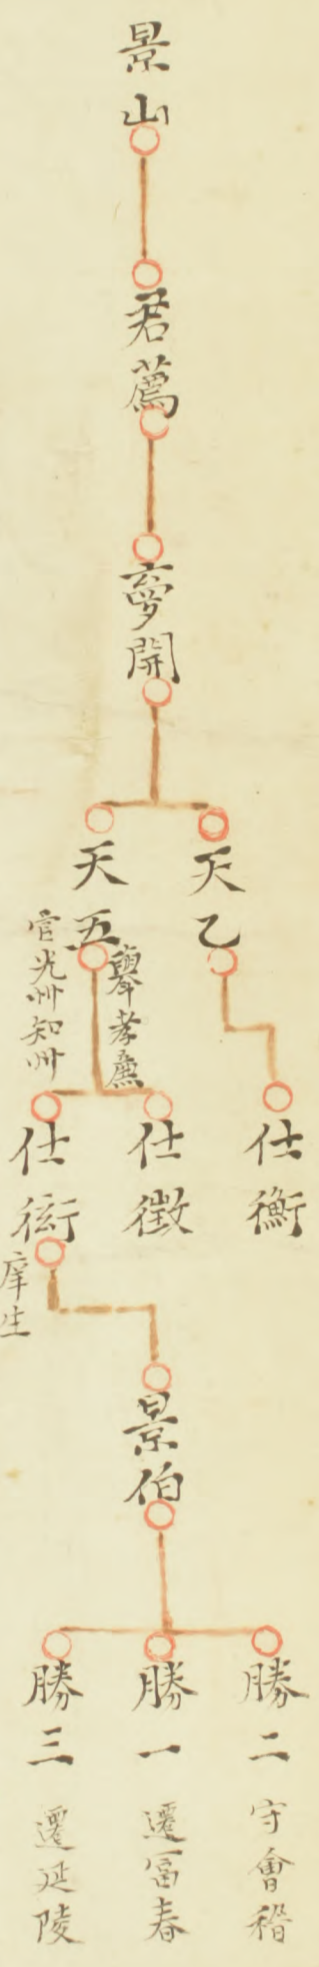 景山
君薦
夢開
天乙
天五
舉孝廉
官光州知州
仕衡
仕徵
仕衙
庠生
景伯
勝二
守會稽
勝一
遷冨春
勝三
遷延陵